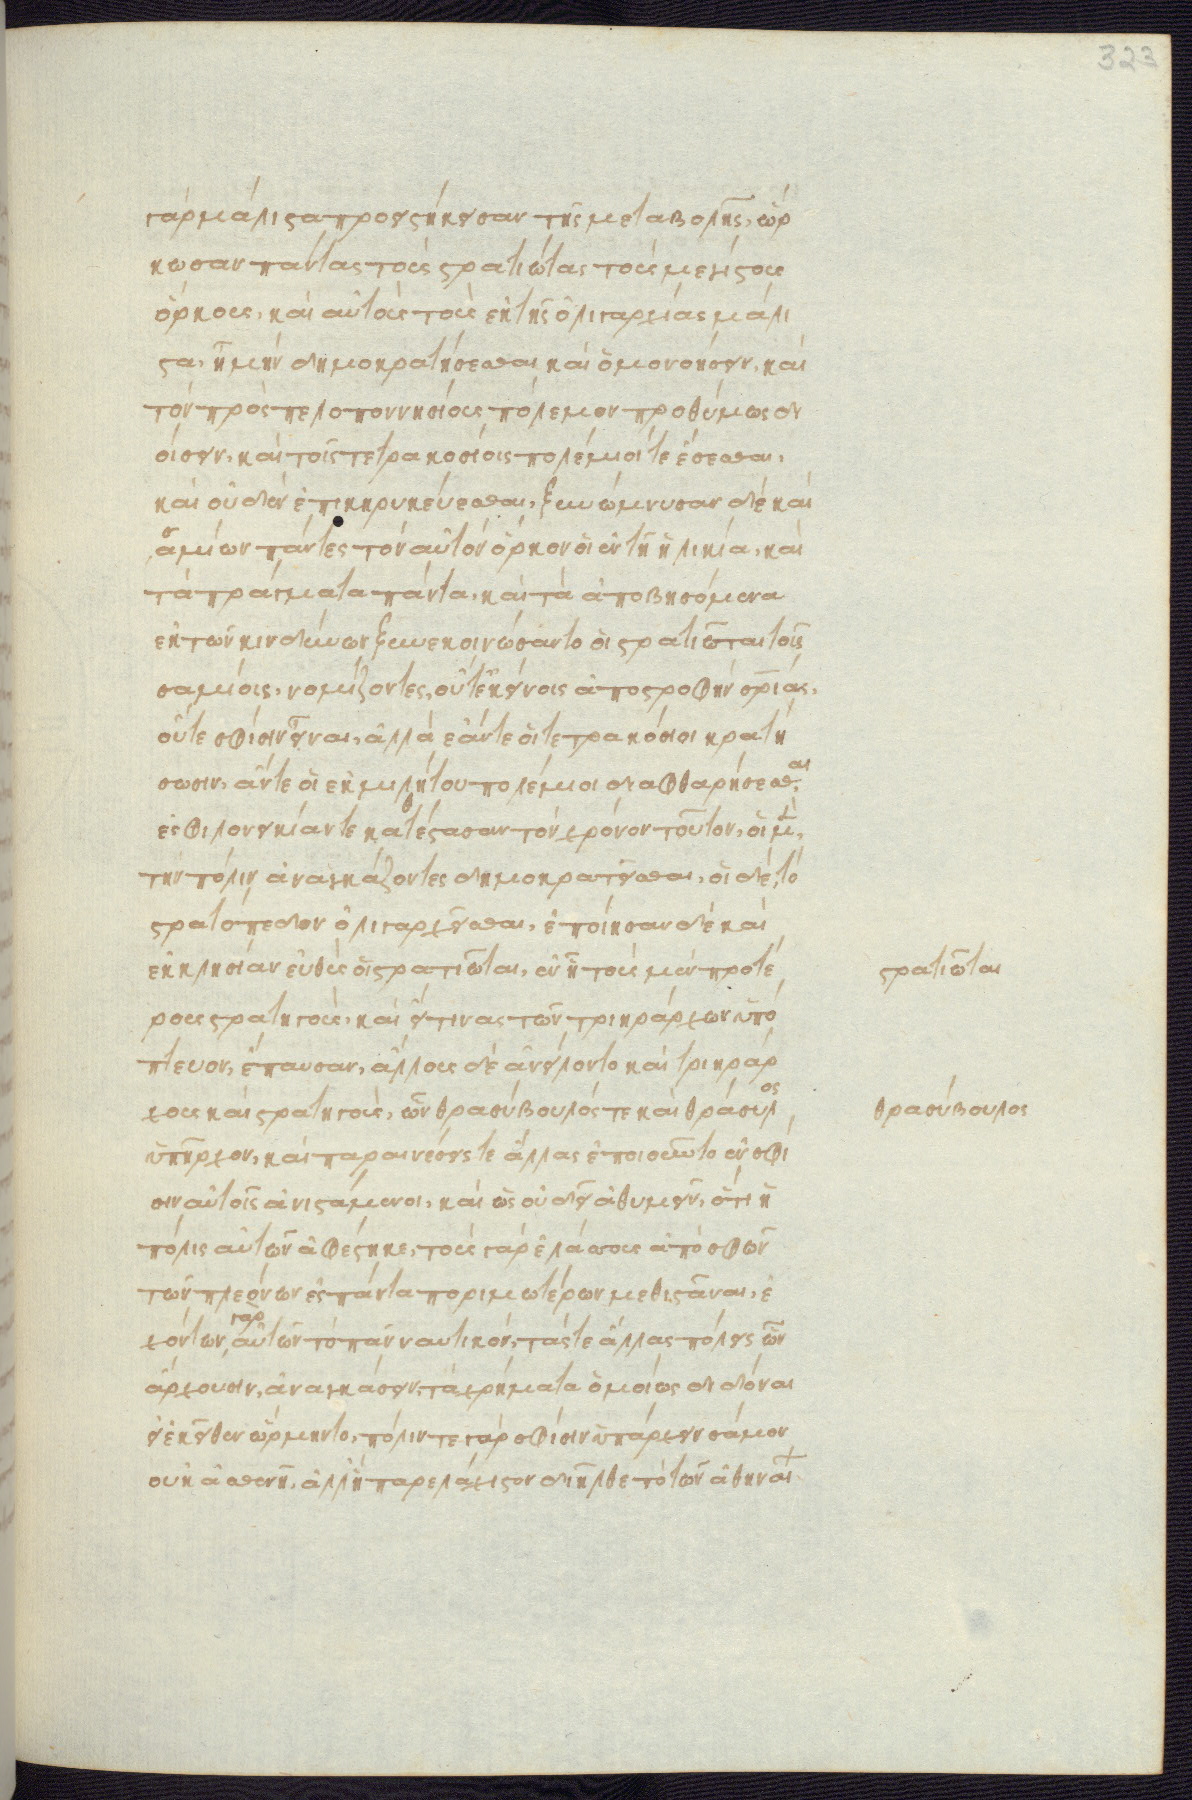 323
γὰρ μάλιστα προεστήκεσαν τῆς μεταβολῆς, ὥρ
κωσαν πάντας τοὺς στρατιώτας τοὺς μεγίστους
ὅρκους, καὶ αὐτοὺς τοὺς ἐκ τῆς ὀλιγαρχίας μάλι
στα, ἦ μὴν δημοκρατήσεσθαι καὶ ὁμονοήσειν, καὶ
τὸν πρὸς πελοποννησίους πόλεμον προθύμως δι
οίσειν, καὶ τοῖς τετρακοσίοις πολέμιοί τε ἔσεσθαι,
καὶ οὐδὲν ἐπικηρυκεύεσθαι, ξυνώμνυσαν δὲ καὶ
σαμίων πάντες τὸν αὐτὸν ὅρκον οἱ ἐν τῇ ἡλικίᾳ, καὶ
τὰ πράγματα πάντα, καὶ τὰ ἀποβησόμενα
ἐκ τῶν κινδύνων ξυνεκοινώσαντο οἱ στρατιῶται τοῖς
σαμίοις, νομίζοντες, οὔτε ἐκείνοις ἀποστροφὴν σωτηρίας,
οὔτε σφίσιν εἶναι, ἀλλὰ ἐάντε οἱ τετρακόσιοι κρατή
σωσιν, ἄντε οἱ ἐκ μιλήτου πολέμιοι διαφθαρήσεσθαι
ἐς φιλονεικίαν τε καθέστασαν τὸν χρόνον τοῦτον, οἱ μὲν,
τὴν πόλιν ἀναγκάζοντες δημοκρατεῖσθαι, οἱ δὲ, τὸ
στρατόπεδον ὀλιγαρχεῖσθαι, ἐποίησαν δὲ καὶ
ἐκκλησίαν εὐθὺς οἱ στρατιῶται, ἐν ᾗ τοὺς μὲν προτέ
ρους στρατηγοὺς, καὶ εἴ τινας τῶν τριηράρχων ὑπό
πτευον, ἔπαυσαν, ἄλλους δὲ ἀνείλοντο καὶ τριηράρ
χους καὶ στρατηγοὺς, ὧν θρασύβουλός τε καὶ θράσυλος
ὑπῆρχον, καὶ παραινέσεις τε ἄλλας ἐποιοῦντο ἐν σφί
σιν αὐτοῖς ἀνιστάμενοι, καὶ ὡς οὐ δεῖ ἀθυμεῖν, ὅτι ἡ
πόλις αὐτῶν ἀφέστηκε, τοὺς γὰρ ἐλάσσους ἀπὸ σφῶν
τῶν πλεόνων ἐς πάντα ποριμωτέρων μεθιστάναι, ἐ
χόντων γὰρ αὐτῶν τὸ πᾶν ναυτικὸν, τάς τε ἄλλας πόλεις ὧν
ἄρχουσιν, ἀναγκάσειν, τὰ χρήματα ὁμοίως διδόναι
εἰ ἐκεῖθεν ὥρμηντο, πόλιν τε γὰρ σφίσιν ὑπάρχειν σάμον
οὐκ ἀσθενῆ, ἀλλ' ἣ παρ ἐλάχιστον δὴ ἦλθε τὸ τῶν ἀθηναίων
στρατιῶται
θρασύβουλος